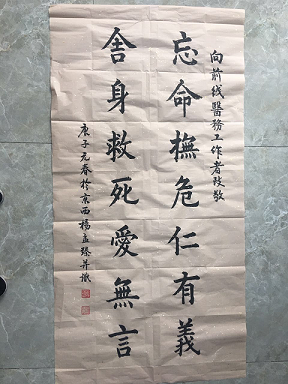 向前线醫務工作者致敬
忘命撫危仁有義
舍身救死愛無言
庚子元春於京西楊孟臻並識